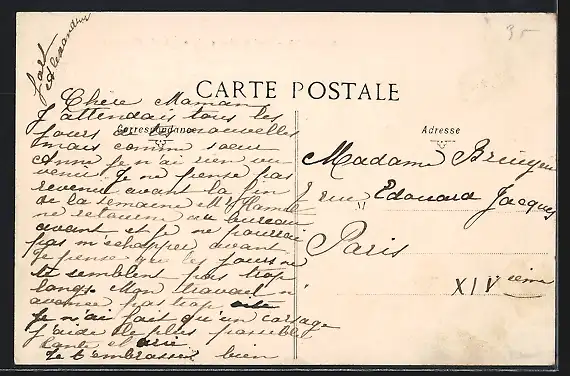 fort
Alexandrine
CARTE POSTALE
Correspondance
Adresse
Chère Maman
J'attendais tous les
jours de nouvelles
mais comme sœur
Anne je n'ai rien vu
venir. Je ne pense pas
revenir avant la fin
de la semaine Mr Hamel
ne retourne au bureau
avant et je ne pourrai
pas m'échapper avant
Je pense que les jours ne
te semblent pas trop
longs. Mon travail n'
avance pas trop vite
Je n'ai fait qu'un corsage
J'aide le plus possible
tante et
Je t'embrasse bien
Madame
rue Edouard Jacques
Paris
XIV ième